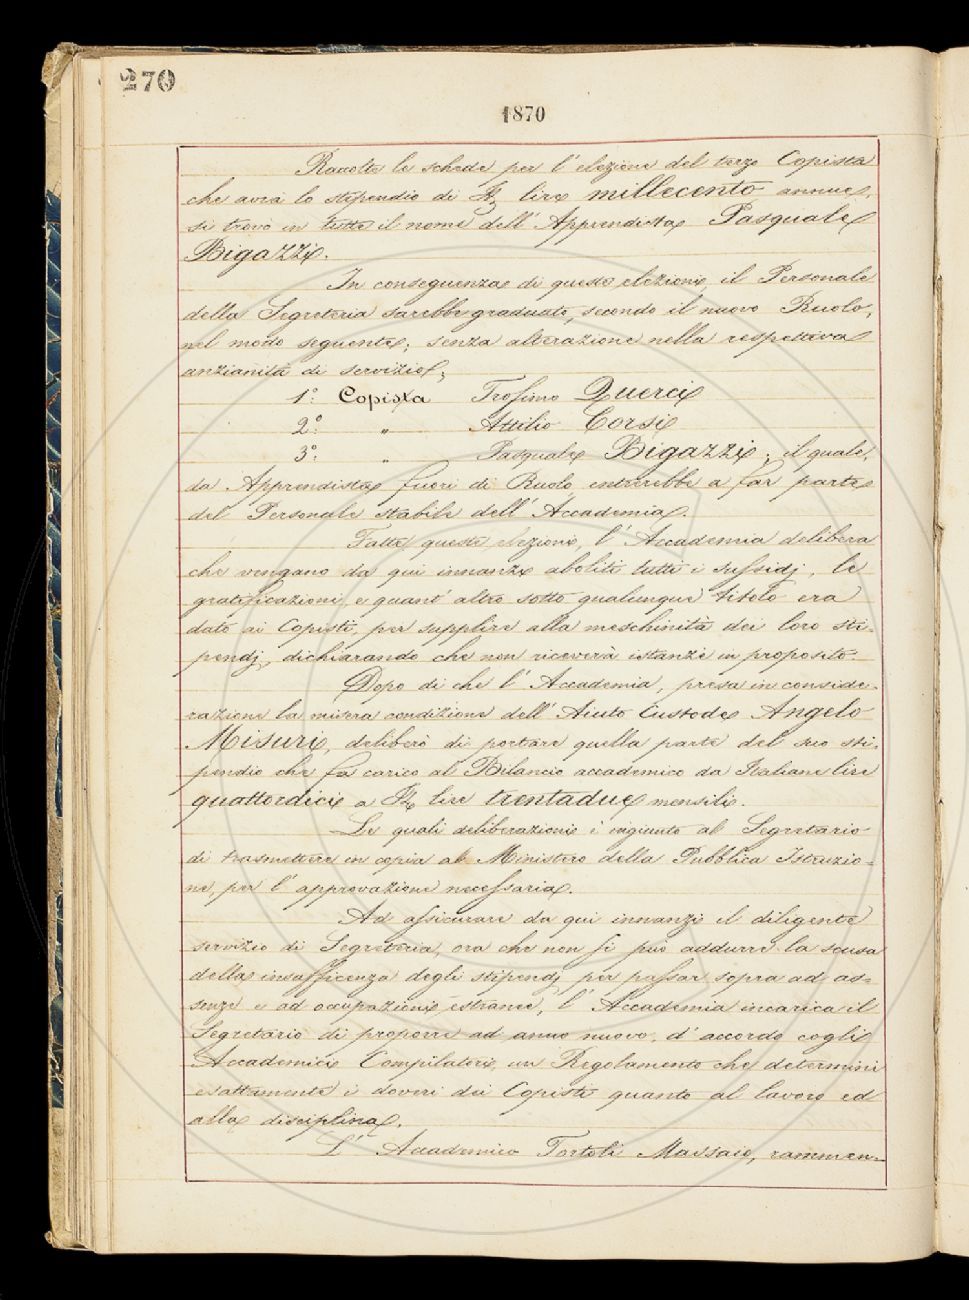 270
1870
Raccolte le schede per l'elezione del terzo Copista
che avrà lo stipendio di lire millecento annue,
si trovò in tutte il nome dell'Apprendista Pasquale
Bigazzi.
In conseguenza di queste elezioni, il Personale
della Segreteria sarebbe graduato, secondo il nuovo Ruolo,
nel modo seguente; senza alterazione nella respettiva
anzianità di servizio;
1º. Copista Trofimo Querci
2º. „ Attilio Corsi
3º. „ Pasquale Bigazzi; il quale,
da Apprendista fuori di Ruolo, entrerebbe a far parte
del Personale stabile dell'Accademia.
Fatte queste elezioni, l'Accademia delibera
che vengano da qui innanzi aboliti tutti i sussidj, le
gratificazioni, e quant'altro sotto qualunque titolo era
dato ai Copisti, per supplire alla meschinità dei loro sti-
pendj, dichiarando che non riceverà istanze in proposito.
Dopo di che l'Accademia, presa in conside-
razione la misera condizione dell'Aiuto Custode Angelo
Misuri, deliberò di portare quella parte del suo sti-
pendio che fa carico al Bilancio accademico da Italiane lire
quattordici a lire trentadue mensili.
Le quali deliberazioni è ingiunto al Segretario
di trasmettere in copia al Ministero della Pubblica Istruzio-
ne, per l'approvazione necessaria.
Ad assicurare da qui innanzi il diligente
servizio di Segreteria, ora che non si può addurre la scusa
della insufficenza degli stipendj per passar sopra ad as-
senze e ad occupazioni estranee, l'Accademia incarica il
Segretario di proporre ad anno nuovo, d'accordo cogli
Accademici Compilatori, un Regolamento che determini
esattamente i doveri dei Copisti quanto al lavoro ed
alla disciplina.
L'Accademico Tortoli Massaio, rammen-